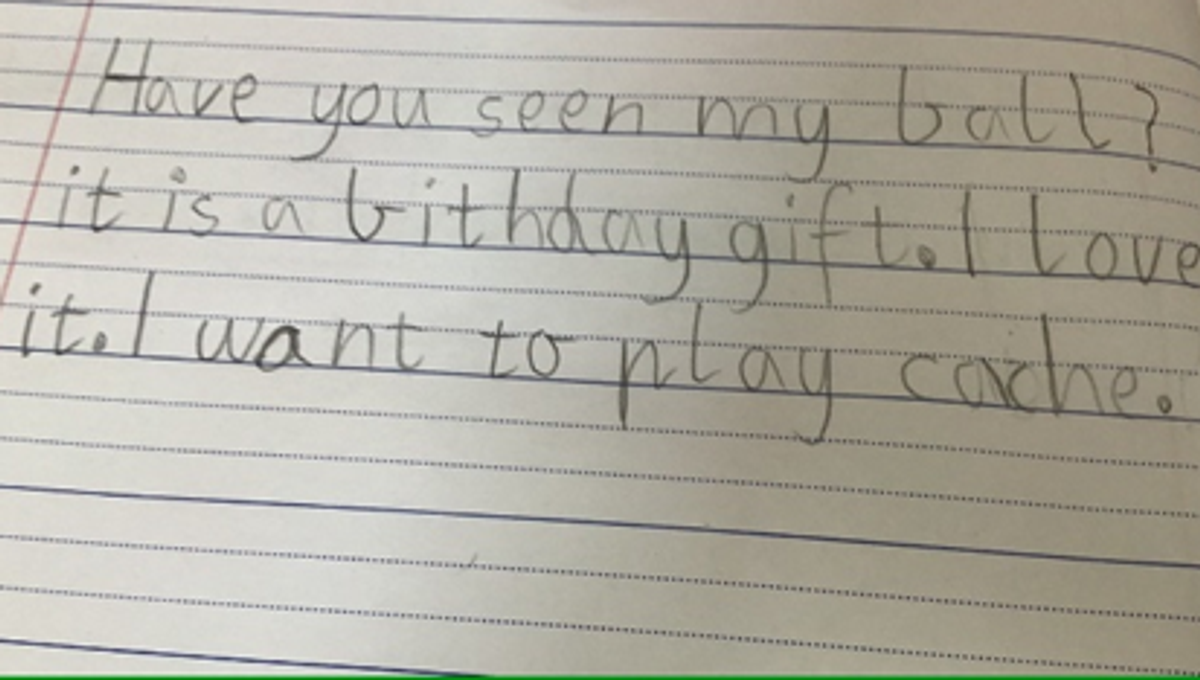 Have you seen my ball?
it is a bithday gift. I love
it. I want to play cache.